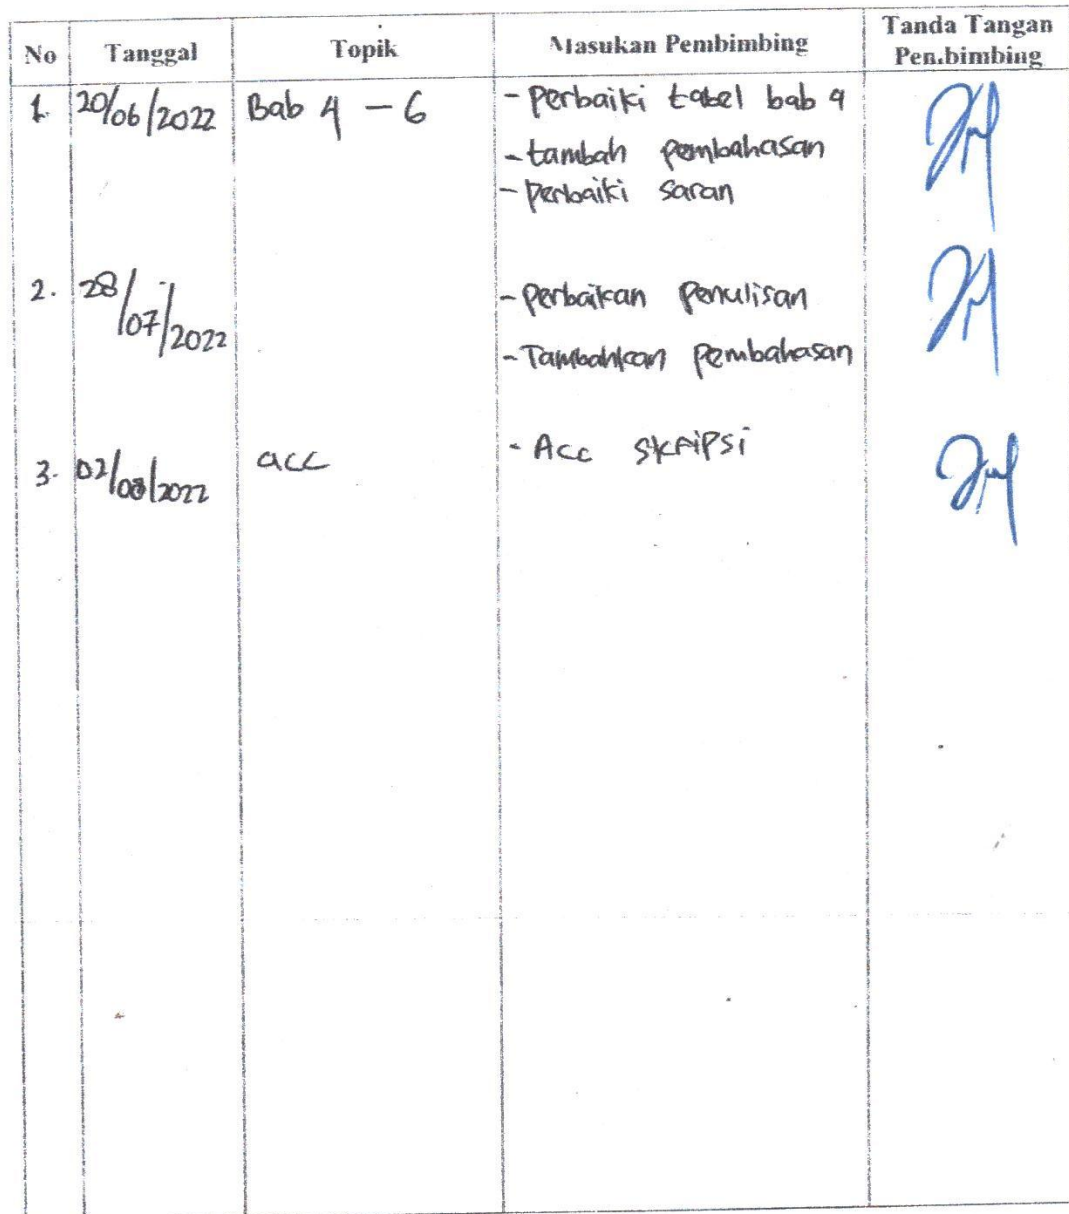 No Tanggal Topik Masukan Pembimbing Tanda Tangan Pembimbing
1. 20/06/2022 Bab 4 - 6 - perbaiki tabel bab 4
- tambah pembahasan
- perbaiki saran
2. 28/07/2022 - perbaikan penulisan
- Tambahkan pembahasan
3. 02/08/2022 acc - Acc skripsi